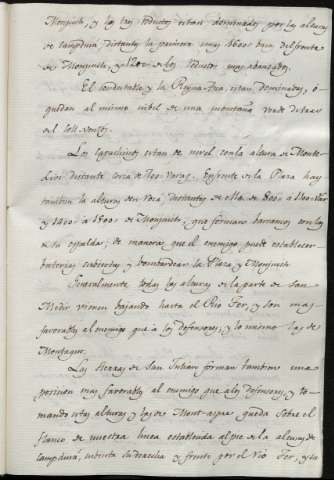 Monjuich, y los tres reductos estan dominados por las alturas
de Campdurá, distantes la primera unas 1600 varas del frente
de Monjuich, y 1200 de los reductos mas abanzados.
El Condestable y la Reyna Ana, estan dominados, ó
quedan al mismo nibel de una montaña
del
Los Capuchinos estan de nivel con la altura de Monte-
distante cerca de 700 varas. Enfrente de la Plaza hay
tambien la altura den Roca, distantes de ella de 800 á 1100 Vars
y 1400 á 1800 de Monjuich, que forman barrancos con los
de su espaldar; de manera, que el enemigo puede establecer
baterias cubiertas y bombardear la Plaza y Monjuich.
Generalmente todas las alturas de la parte de San
Medir vienen bajando hasta el Rio Ter, y son mas
favorables al enemigo que á los defensores; y lo mismo las de
Montagut.
Las Sierras de San Julian forman tambien una
posicion mas favorable al enemigo que á los defensores, y to-
mando estas alturas y las de Mont-aspre queda sobre el
flanco de nuestra linea establecida al pie de la altura de
Campdurá, cubierta su derecha y frente por el Rio Ter, y su